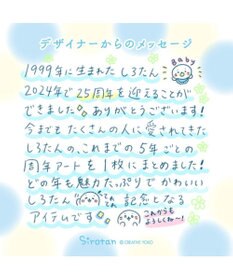 デザイナーからのメッセージ
Baby
1999年に生まれた しろたん
2024年で 25周年を迎えることが
できました✨ありがとうございます!
今までも たくさんの人に愛されてきた
しろたんの、これまでの 5年ごとの
周年アートを 1枚にまとめました!
どの年も魅力たっぷりで かわいい
しろたん 記念となる
アイテムです
これからも
よろしくね〜!
Sirotan © CREATIVE YOKO